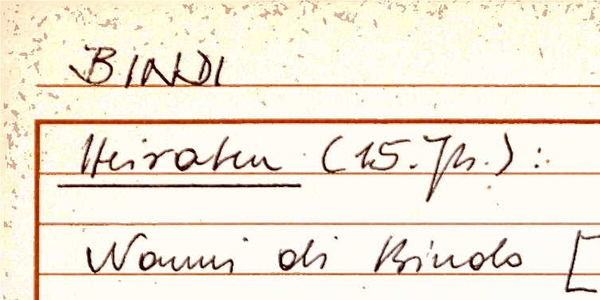 BINDI
Heiraten (15. Jh.):
Nanni di Bindo [